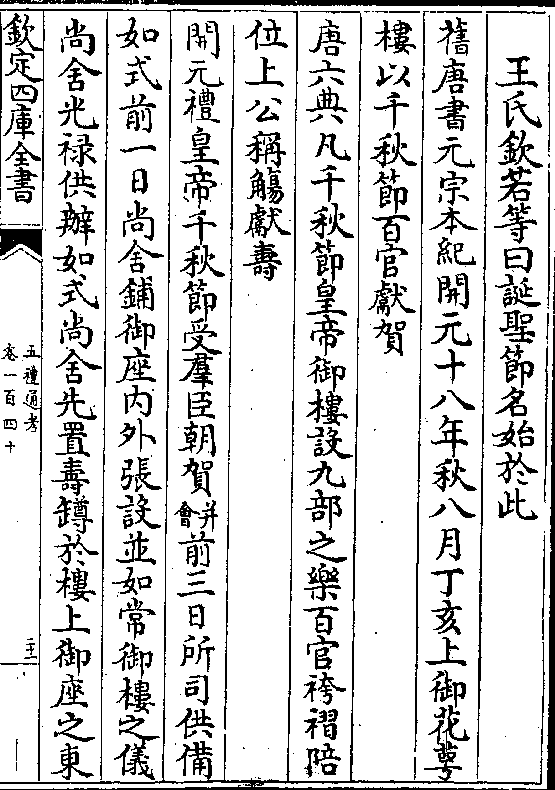 王氏欽若等曰誕聖節名始於此
舊唐書元宗本紀開元十八年秋八月丁亥上御花萼
樓以千秋節百官獻賀
唐六典凡千秋節皇帝御樓設九部之樂百官袴褶陪
位上公稱觴獻壽
開元禮皇帝千秋節受羣臣朝賀并會前三日所司供備
如式前一日尚舍鋪御座内外張設並如常御樓之儀
尚舍光禄供辦如式尚舍先置壽罇於樓上御座之東
欽定四庫全書
五禮通考
卷一百四十
二十一